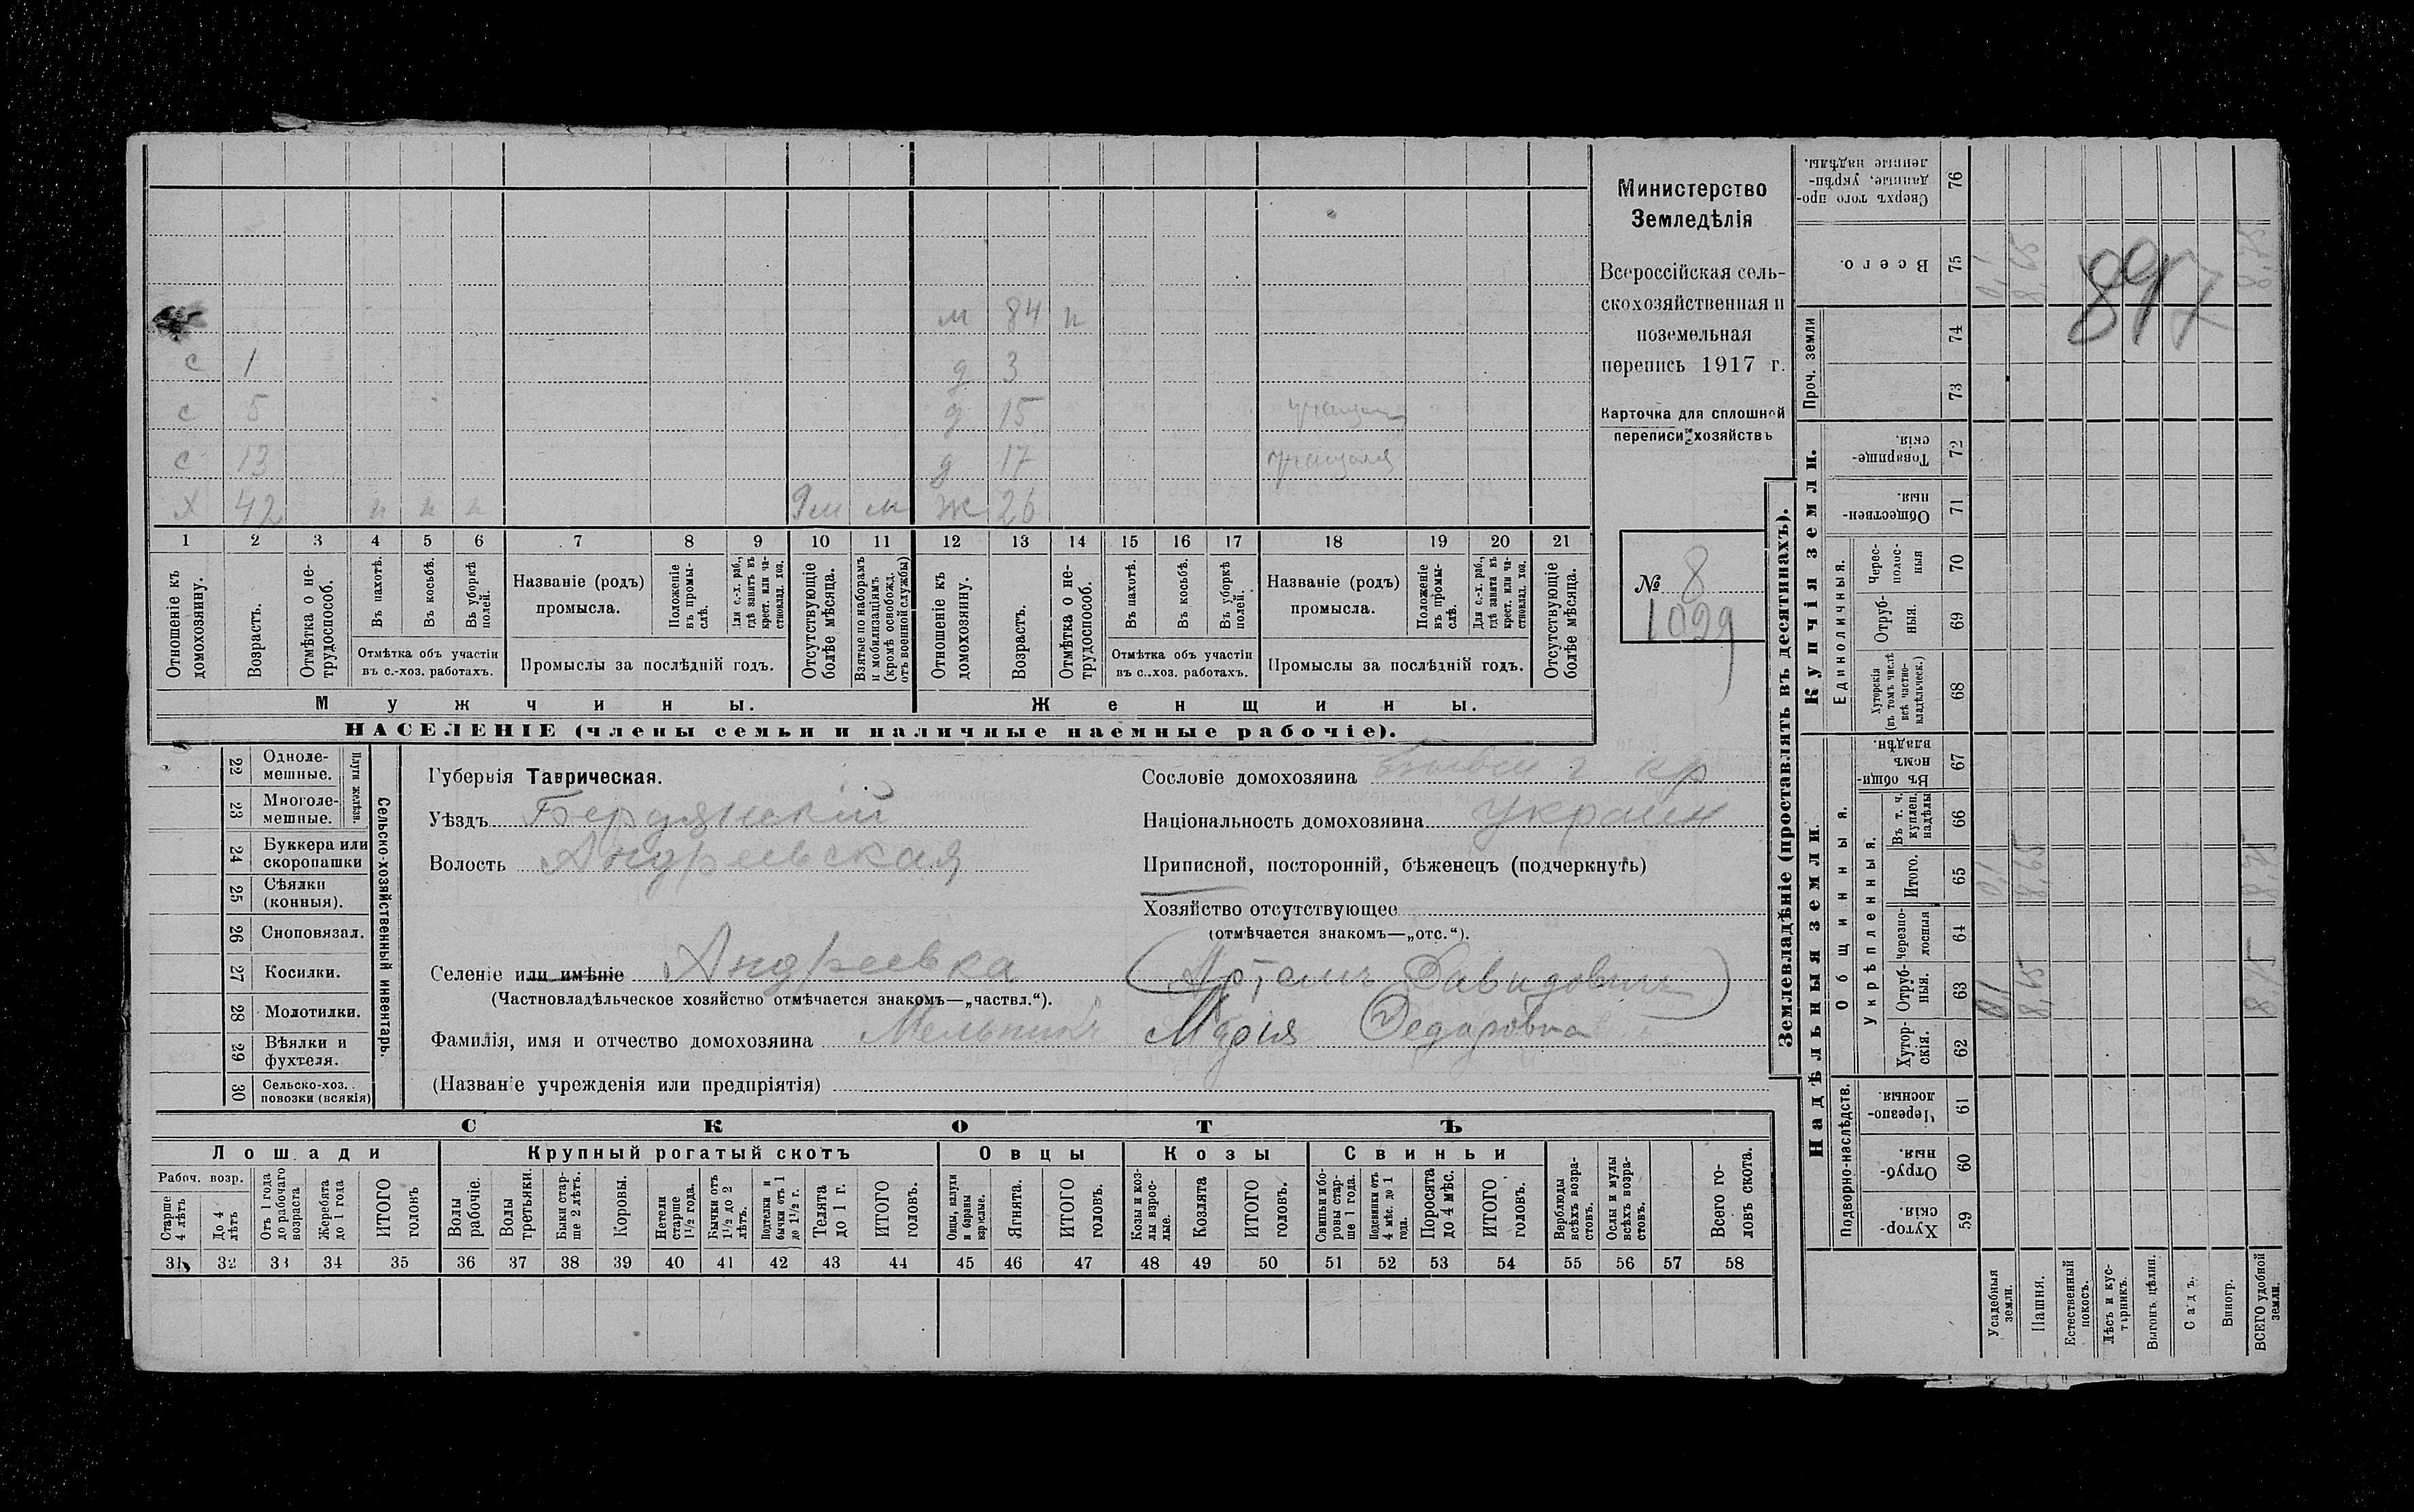 м 84 п
с 1 д 3
с 5 д 15
с 13 д 17
х 42 п п п м ж 26
1 2 3 4 5 6 7 8 9 10 11 12 13 14 15 16 17 18 19 20 21
Отношеніе къ домохозяину.
Возрастъ.
Отмѣтка о нетрудоспособ.
Въ пахотѣ.
Въ косьбѣ.
Въ уборкѣ полей.
Отмѣтка объ участіи въ с.-хоз. работахъ.
Названіе (родъ) промысла.
Положеніе въ промыслѣ.
Для с.-х. раб., гдѣ занятъ въ крест. или частновлад. хоз.
Промыслы за послѣдній годъ.
Отсутствующіе болѣе мѣсяца.
Взятые по наборамъ и мобилизаціямъ (кромѣ освобожд. отъ военной службы)
Отношеніе къ домохозяину.
Возрастъ.
Отмѣтка о нетрудоспособ.
Въ пахотѣ.
Въ косьбѣ.
Въ уборкѣ полей.
Отмѣтка объ участіи въ с.-хоз. работахъ.
Названіе (родъ) промысла.
Положеніе въ промыслѣ.
Для с.-х. раб., гдѣ занята въ крест. или частновлад. хоз.
Промыслы за послѣдній годъ.
Отсутствующіе болѣе мѣсяца.
Мужчины.
Женщины.
НАСЕЛЕНІЕ (члены семьи и наличные наемные рабочіе).
Министерство
Земледѣлія
Всероссійская сель-
скохозяйственная и
поземельная
перепись 1917 г.
Карточка для сплошной
переписи хозяйствъ
№ 8
1029
22 Однолемешные.
23 Многолемешные.
Плуги желѣзн.
24 Буккера или скоропашки
25 Сѣялки (конныя).
26 Сноповязал.
27 Косилки.
28 Молотилки.
29 Вѣялки и фухтеля.
30 Сельско-хоз. повозки (всякія)
Сельско-хозяйственный инвентарь.
Губернія Таврическая.
Уѣздъ Бердянскій
Волость Андреевская
Селеніе или имѣніе Андреевка
(Частновладѣльческое хозяйство отмѣчается знакомъ—„частвл.“).
Фамилія, имя и отчество домохозяина Мельникъ Марія Федоровна
(Названіе учрежденія или предпріятія)
Сословіе домохозяина кр
Національность домохозяина украин
Приписной, посторонній, бѣженецъ (подчеркнуть)
Хозяйство отсутствующее
(отмѣчается знакомъ—„отс.“).
(Артемъ Давидовичъ)
СКОТЪ
Лошади
Крупный рогатый скотъ
Овцы
Козы
Свиньи
Рабоч. возр.
Старше 4 лѣтъ
До 4 лѣтъ
Отъ 1 года до рабочаго возраста
Жеребята до 1 года
ИТОГО головъ
Волы рабочіе.
Волы третьяки.
Быки старше 2 лѣтъ.
Коровы.
Нетели старше 1½ года.
Бычки отъ 1½ до 2 лѣтъ.
Подтелки и бычки отъ 1 до 1½ г.
Телята до 1 г.
ИТОГО головъ.
Овцы, валухи и бараны взрослые.
Ягнята.
ИТОГО головъ.
Козы и козлы взрослые.
Козлята
ИТОГО головъ.
Свиньи и боровы старше 1 года.
Подсвинки отъ 4 мѣс. до 1 года.
Поросята до 4 мѣс.
ИТОГО головъ.
Верблюды всѣхъ возрастовъ.
Ослы и мулы всѣхъ возрастовъ.
Всего головъ скота.
31 32 33 34 35 36 37 38 39 40 41 42 43 44 45 46 47 48 49 50 51 52 53 54 55 56 57 58
Землевладѣніе (проставлять въ десятинахъ).
Надѣльныя земли.
Купчія земли.
Проч. земли
Подворно-наслѣдств.
Общинныя.
Укрѣпленныя.
Единоличныя.
Сверхъ того проданные, укрѣпленные надѣлы. 76
Всего. 75
74
73
Товарищескія. 72
Общественныя. 71
Чересполосныя 70
Отрубныя. 69
Хуторскія (въ томъ числѣ всѣ частновладѣльческ.) 68
Въ общинномъ владѣн. 67
Въ т. ч. куплен. надѣлы 66
Итого. 65
Черезполосныя 64
Отрубныя. 63
Хуторскія. 62
Черезполосныя. 61
Отрубныя. 60
Хуторскія. 59
Усадебныя земли. 0,1 0,1 0,1
Пашня. 8,65 8,65 8,65
Естественный покосъ.
Лѣсъ и кустарникъ.
Выгонъ цѣлин.
Садъ.
Виногр.
ВСЕГО удобной земли. 8,75 8,75 8,75
897